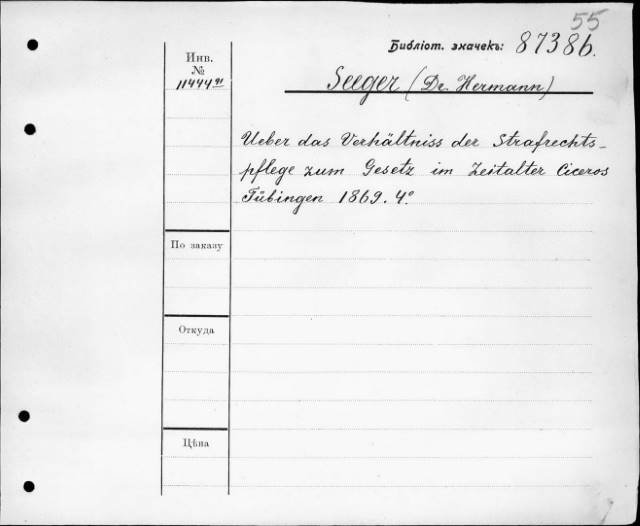 55
Библіот. значекъ: 8738б.
Инв.
№
11444
Seeger (Dr. Hermann)
Ueber das Verhältniss der Strafrechts-
pflege zum Gesetz im Zeitalter Ciceros
Tübingen 1869. 4°
По заказу
Откуда
Цѣна